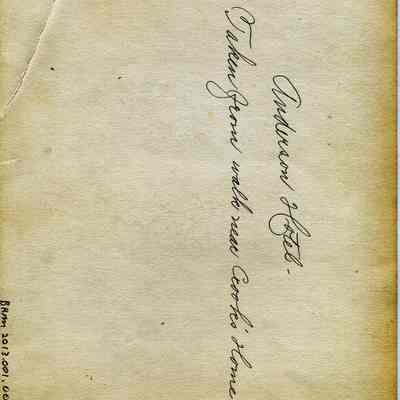 Anderson Hotel-
Taken from walk near Cook's Home
BRM 2013.001.00